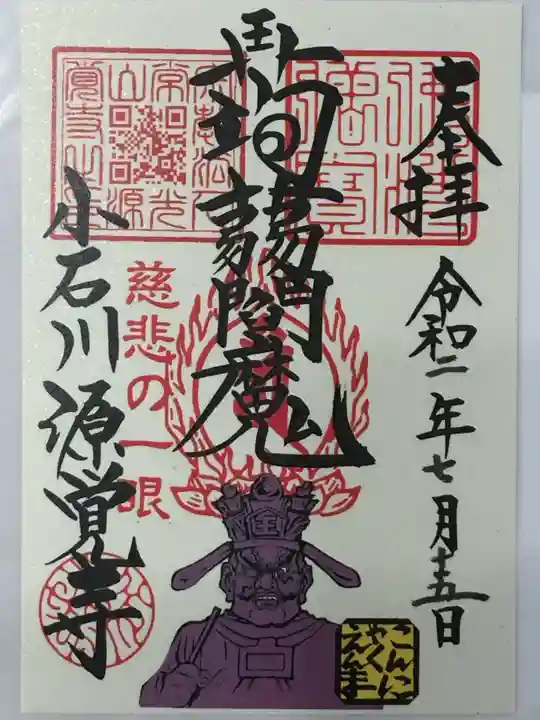 奉拝
令和二年七月十五日
蒟蒻閻魔
慈悲の一眼
小石川源覚寺
佛法僧寶
常光山
源覚寺
こんに
ゃく
えんま